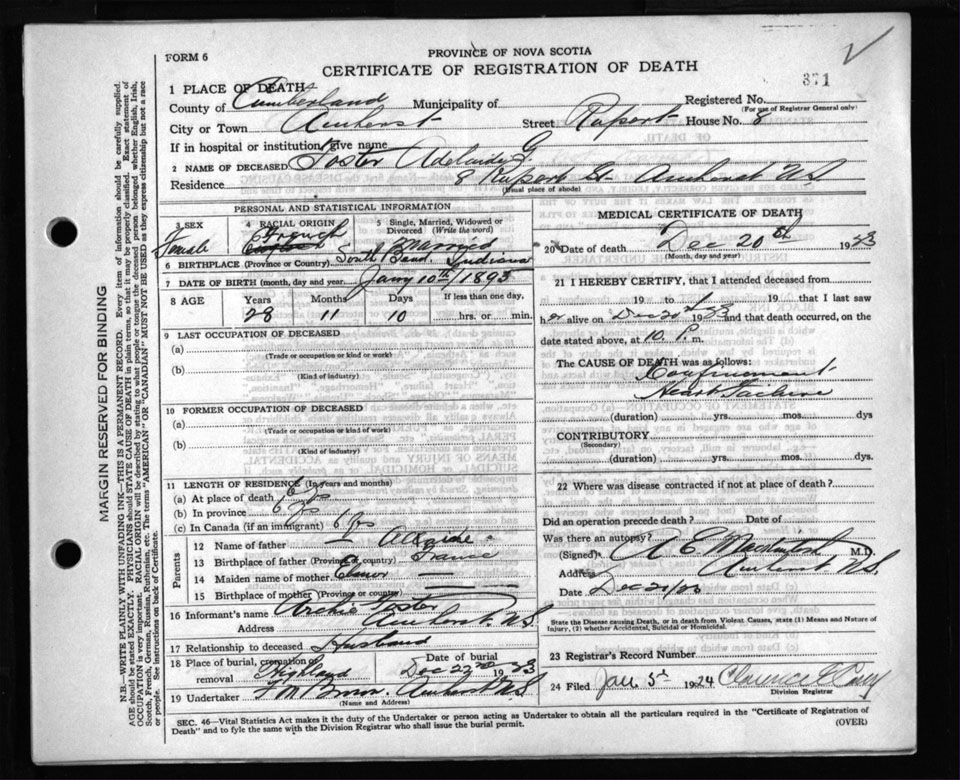 FORM 6
PROVINCE OF NOVA SCOTIA
CERTIFICATE OF REGISTRATION OF DEATH
371
1 PLACE OF DEATH
County of Cumberland Municipality of Registered No.
(For use of Registrar General only)
City or Town Amherst Street Rupert House No. 8
If in hospital or institution, give name
2 NAME OF DECEASED Foster Adelaide G.
Residence 8 Rupert St. Amherst NS
(Usual place of abode)
PERSONAL AND STATISTICAL INFORMATION
3 SEX 4 RACIAL ORIGIN 5 Single, Married, Widowed or Divorced (Write the word)
Female French Married
6 BIRTHPLACE (Province or Country) South Bend. Indiana
7 DATE OF BIRTH (month, day and year) Jany 10th 1893
8 AGE Years Months Days If less than one day,
28 11 10 hrs. or min.
9 LAST OCCUPATION OF DECEASED
(a)
(Trade or occupation or kind of work)
(b)
(Kind of industry)
10 FORMER OCCUPATION OF DECEASED
(a)
(Trade or occupation or kind of work)
(b)
(Kind of industry)
11 LENGTH OF RESIDENCE (In years and months)
(a) At place of death 6 yrs
(b) In province 6 yrs
(c) In Canada (if an immigrant) 6 yrs
Parents
12 Name of father
13 Birthplace of father (Province or country) France
14 Maiden name of mother
15 Birthplace of mother (Province or country)
16 Informant's name Archie Foster
Address Amherst NS.
17 Relationship to deceased Husband
18 Place of burial, cremation or removal Highland Date of burial Dec 22nd 1923
19 Undertaker Amherst NS
(Name and Address)
MEDICAL CERTIFICATE OF DEATH
20 Date of death Dec 20th 1923
(Month, day and year)
21 I HEREBY CERTIFY, that I attended deceased from
19 to 19 that I last saw
her alive on Dec 20 1923 and that death occurred, on the
date stated above, at 10 P. m.
The CAUSE OF DEATH was as follows:
Confinement
Heart Failure
(duration) yrs. mos. dys
CONTRIBUTORY
(Secondary)
(duration) yrs. mos. dys
22 Where was disease contracted if not at place of death?
Did an operation precede death? Date of
Was there an autopsy?
(Signed) M.D.
Address Amherst NS.
Date Dec
State the Disease causing Death, or in death from Violent Causes, state (1) Means and Nature of Injury, (2) whether Accidental, Suicidal or Homicidal.
23 Registrar's Record Number
24 Filed Jan 5th 1924 Clarence
Division Registrar
SEC. 46—Vital Statistics Act makes it the duty of the Undertaker or person acting as Undertaker to obtain all the particulars required in the "Certificate of Registration of
Death" and to fyle the same with the Division Registrar who shall issue the burial permit.
(OVER)
MARGIN RESERVED FOR BINDING
N.B.—WRITE PLAINLY WITH UNFADING INK—THIS IS A PERMANENT RECORD. Every item of information should be carefully supplied.
AGE should be stated EXACTLY. PHYSICIANS should STATE CAUSE OF DEATH in plain terms, so that it may be properly classified. Exact statement of
OCCUPATION is very important. RACIAL ORIGIN will be described by stating to what people or tongue the deceased person belonged whether English, Irish,
Scotch, French, German, Russian, Ruthenian, etc. The terms "AMERICAN" or "CANADIAN" MUST NOT BE USED as they express citizenship but not a race
or people. See instructions on back of Certificate.